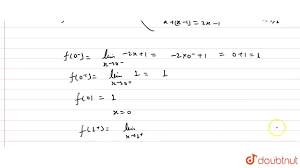 x+(x-1) = 2x-1
f(0-) = lim x→0- -2x+1 = -2x0-+1 = 0+1 = 1
f(0+) = lim x→0+ 1 = 1
f(0) = 1
x=0
f(1+) = lim x→1+
doubtnut